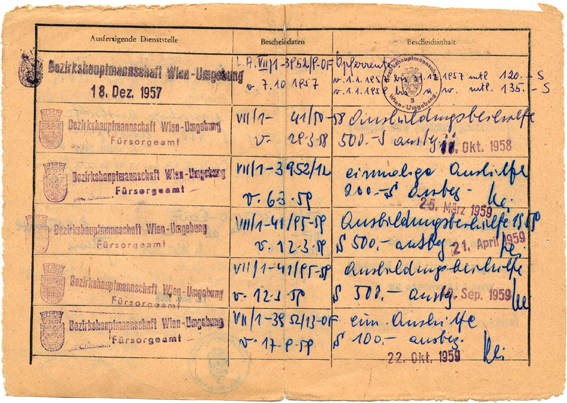 Ausfertigende Dienststelle Bescheiddaten Bescheidinhalt
Bezirkshauptmannschaft Wien-Umgebung
18. Dez. 1957
L.A. VII/1-3952/9-OF
v. 7.10.1957
Opferrente
v. 1.1. bis 1957 mtl. 120.-S
v. 1.1. bis a. w. mtl. 135.-S
Bezirkshauptmannschaft Wien-Umgebung
Fürsorgeamt
VII/1- 41/50-58
v. 29.3.58
Ausbildungsbeihilfe
500.-S ausbez.
Okt. 1958
Bezirkshauptmannschaft Wien-Umgebung
Fürsorgeamt
VII/1-3952/12
v. 6.3.59
einmalige Aushilfe
200.-S ausbez.
25. März 1959
Bezirkshauptmannschaft Wien-Umgebung
Fürsorgeamt
VII/1-41/95-59
v. 12.3.59
Ausbildungsbeihilfe
S 500.- ausbez.
21. April 1959
Bezirkshauptmannschaft Wien-Umgebung
Fürsorgeamt
VII/1-41/95-59
v. 12.3.59
Ausbildungsbeihilfe
S 500.- ausbez.
Sep. 1959
Bezirkshauptmannschaft Wien-Umgebung
Fürsorgeamt
VII/1-3952/13-OF
v. 17.9.59
eim. Aushilfe
S 100.- ausbez.
22. Okt. 1959